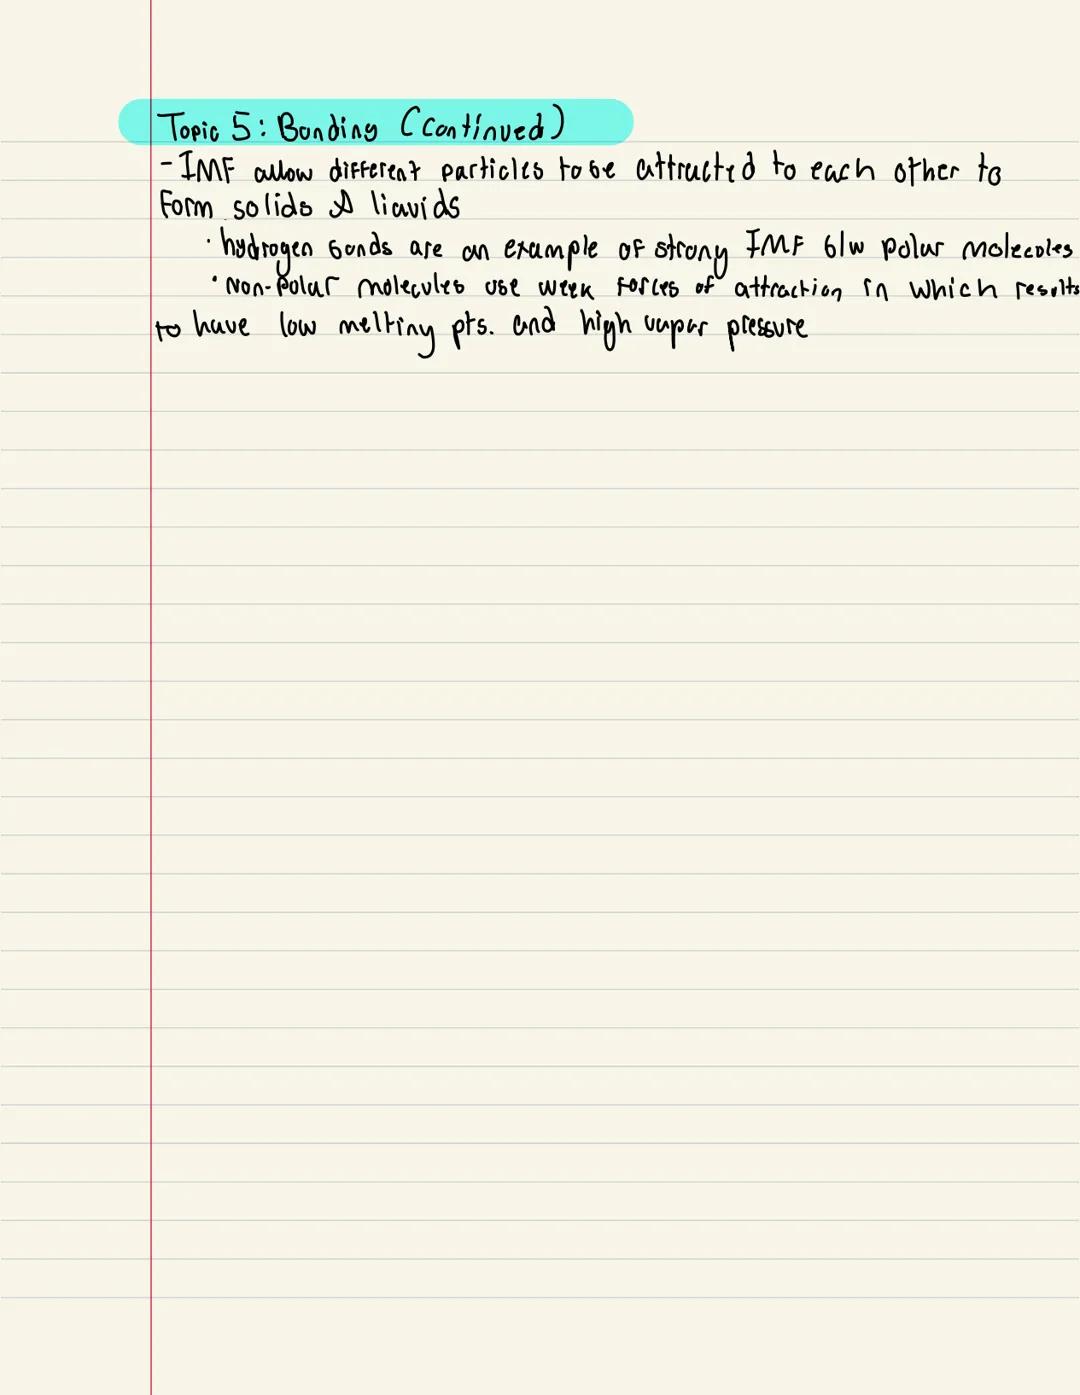 Topic 5: Bonding (Continued)
- IMF allow different particles to be attracted to each other to
form solids & liquids
· hydrogen bonds are an example of strong IMF b/w polar molecules
· Non-polar molecules use weak forces of attraction in which results
to have low melting pts. and high vapor pressure